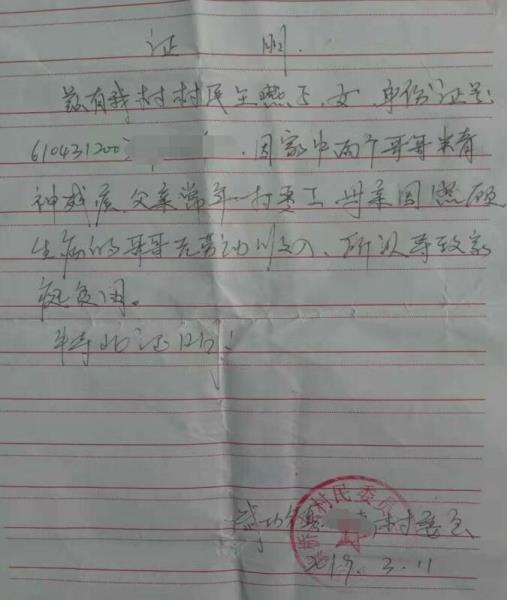 证 明.
兹有我村村民王燕 女,身份证号
610431200 ,因家中两个哥哥患有
神经病,父亲常年打零工,母亲因照顾
生病的哥哥无劳动收入、所以导致家
庭贫困。
特此证明!
村民委员
武功县 村委会
2019. 3. 11